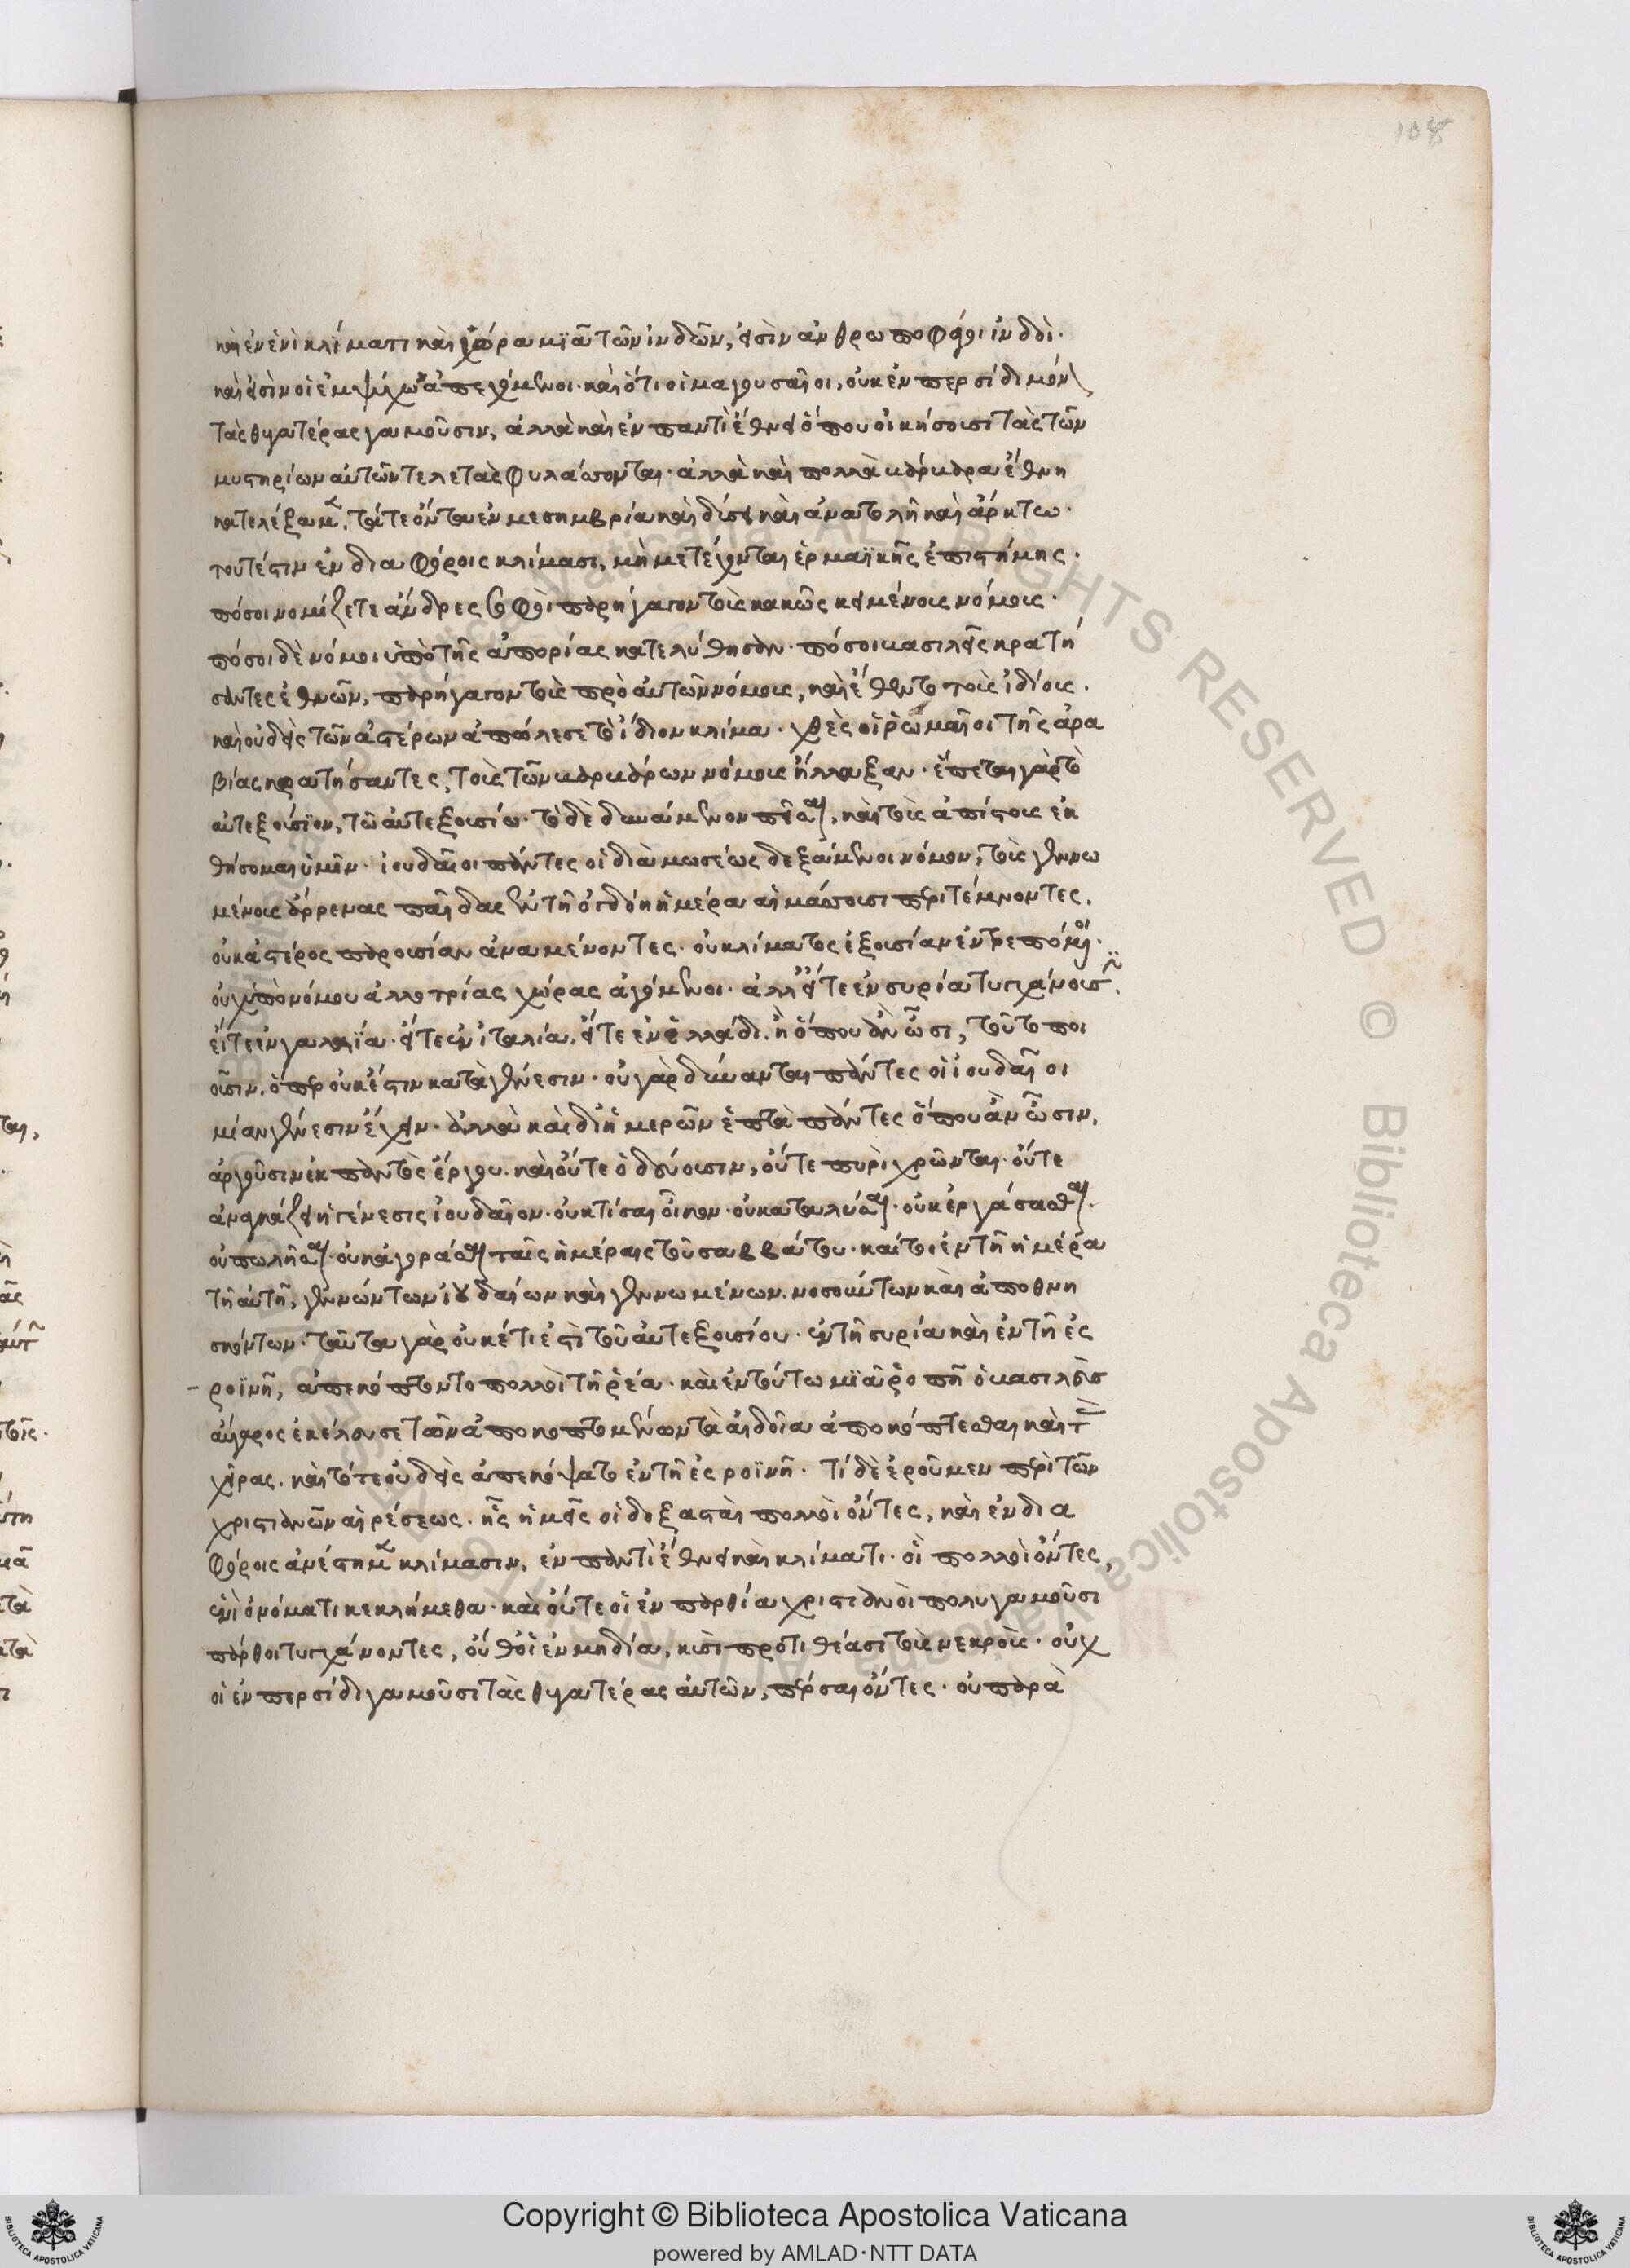 108
καὶ ἐν ἑνὶ κλίματι καὶ χώρα μϊᾶ τῶν ἰνδῶν, εἰσὶν ἀνθρωποφάγοι ἰνδοὶ·
καὶ εἰσὶν οἱ ἐμψύχων ἀπεχόμενοι· καὶ ὅτι οἱ μαγουσαῖοι, οὐκ ἐν περσίδι μόνη
τὰς θυγατέρας γαμοῦσιν, ἀλλὰ καὶ ἐν παντὶ ἔθνει ὅπου οἰκήσουσι τὰς τῶν
μυστηρίων αὐτῶν τελετὰς φυλάττονται· ἀλλὰ καὶ πολλὰ βάρβαρα ἔθνη
κατελέξαμεν, τά τε ὄντα ἐν μεσημβρία καὶ δύσει καὶ ἀνατολῆ καὶ ἄρκτω·
τουτέστιν ἐν διαφόροις κλίμασι, μὴ μετέχονται ἑρμαϊκῆς ἐπιστήμης·
πόσοι νομίζετε ἄνδρες σοφοὶ παρήγαγον τοὺς κακῶς κειμένους νόμους·
πόσοι δὲ νόμοι ὑπὸ τῆς ἀπορίας κατελύθησαν· πόσοι βασιλεῖς κρατή
σαντες ἐθνῶν, παρήγαγον τοὺς πρὸ αὐτῶν νόμους, καὶ ἔθεντο τοὺς ἰδίους·
καὶ οὐδεὶς τῶν ἀστέρων ἀπώλεσε τὸ ἴδιον κλίμα· χθὲς οἱ ῥωμαῖοι τῆς ἀρα
βίας κρατήσαντες, τοὺς τῶν βαρβάρων νόμους ἤλλαξαν· ἕπεται γὰρ τὸ
αὐτεξούσϊον, τῶ αὐτεξουσίω· τὸ δὲ δυνάμενον πεῖσαι, καὶ τοὺς ἀπίστους ἐκ
θήσομαι ὑμῖν· ἰουδαῖοι πάντες οἱ διὰ μωσέως δεξάμενοι νόμον, τοὺς γεννω
μένους ἄρρενας παῖδας ἐν τῆ ὀγδόη ἡμέρα αἱμάττουσι περιτέμνοντες,
οὐκ ἀστέρος παρουσίαν ἀναμένοντες· οὐ κλίματος ἐξουσίαν ἐντρεπόμενοι·
οὐχ ὑπὸ νόμου ἀλλοτρίας χώρας ἀγόμενοι· ἀλλ' εἴτε ἐν συρία τυγχάνουσιν,
εἴτε ἐν γαλλία· εἴτε ἐν ἰταλία, εἴτε ἐν ἑλλάδι· ἢ ὅπου ἂν ὦσι, τοῦτο ποι
οῦσιν, ὅπερ οὐκ ἔστιν κατὰ γένεσιν· οὐ γὰρ δύνανται πάντες οἱ ἰουδαῖοι
μίαν γένεσιν ἔχειν· ἀλλὰ καὶ δι' ἡμερῶν ἑπτὰ πάντες ὅπου ἂν ὦσιν,
ἀργοῦσιν ἐκ παντὸς ἔργου· καὶ οὔτε ὁδεύουσιν, οὔτε πυρὶ χρῶνται· οὔτε
ἀναγκάζει ἡ γένεσις ἰουδαῖον· οὐ κτίσαι οἶκον· οὐ καταλῦσαι· οὐκ ἐργάσασθαι·
οὐ πωλῆσαι· οὐκ ἀγοράσαι ταῖς ἡμέραις τοῦ σαββάτου· καίτοι ἐν τῆ ἡμέρα
τῆ αὐτῆ, γεννώντων ἰουδαίων καὶ γεννωμένων· νοσούντων καὶ ἀποθνη
σκόντων· ταῦτα γὰρ οὐκ ἔτι ἐστὶ τοῦ αὐτεξουσίου· ἐν τῆ συρία καὶ ἐν τῆ ἐς
ροϊνῆ, ἀπεκόπτοντο πολλοὶ τῆ ῥέα· καὶ ἐν τούτω μϊᾶ ῥοπῆ ὁ βασιλεὺς
αὔγαρος ἐκέλευσε τῶν ἀποκοπτομένων τὰ αἰδοῖα ἀποκόπτεσθαι καὶ τὰς
χεῖρας· καὶ τότε οὐδεὶς ἀπεκόψατο ἐν τῆ ἐςροϊνῆ· τί δὲ ἐροῦμεν περὶ τῶν
χριστιανῶν αἱρέσεως· ἧς ἡμεῖς οἱ δοξασταὶ πολλοὶ ὄντες, καὶ ἐν δια
φόροις ἀνέστημεν κλίμασιν, ἐν παντὶ ἔθνει καὶ κλίματι· οἳ πολλοὶ ὄντες,
ἑνὶ ὀνόματι κεκλήμεθα· καὶ οὔτε οἱ ἐν παρθία χριστιανοὶ πολυγαμοῦσι
πάρθοι τυγχάνοντες, οὔθ' οἱ ἐν μηδία, κυσὶ προτιθέασι τοὺς νεκρούς· οὐχ
οἱ ἐν περσίδι γαμοῦσι τὰς θυγατέρας αὐτῶν, πέρσαι ὄντες· οὐ παρὰ
Copyright © Biblioteca Apostolica Vaticana
powered by AMLAD·NTT DATA